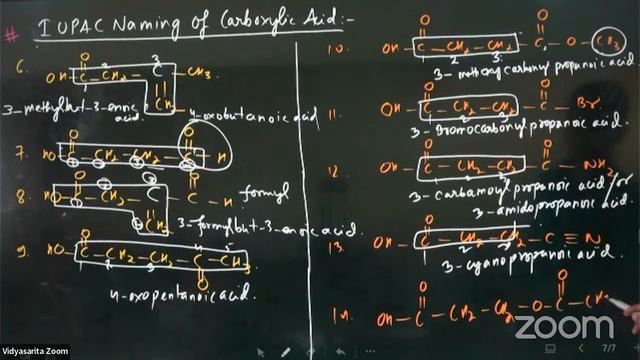 # IUPAC Naming of Carboxylic Acid:-
6.
O
OH - C - CH2 - C - CH3
1 2 3
CH2
3-methylbut-3-enoic acid.
4-oxobutanoic acid
7.
O O
HO - C - CH2 - CH2 - C - H
8.
O O
HO - C - CH2 - C - C - H formyl
CH2
3-formylbut-3-enoic acid.
9.
O 4 5
HO - C - CH2 - CH2 - C - CH3
1 2 3
O
4-oxopentanoic acid.
10.
O O
OH - C - CH2 - CH2 - C - O - CH3
1 2 3
3-methoxy carbonyl propanoic acid.
11.
O O
OH - C - CH2 - CH2 - C - Br
3-Bromocarbonyl propanoic acid.
12.
O O
OH - C - CH2 - CH2 - C - NH2
3-carbamoyl propanoic acid/or
3-amidopropanoic acid.
13.
O
OH - C - CH2 - CH2 - C ≡ N
1 2 3
3-cyanopropanoic acid.
14.
O O
OH - C - CH2 - CH2 - O - C - CH
zoom
7/7
Vidyasarita Zoom